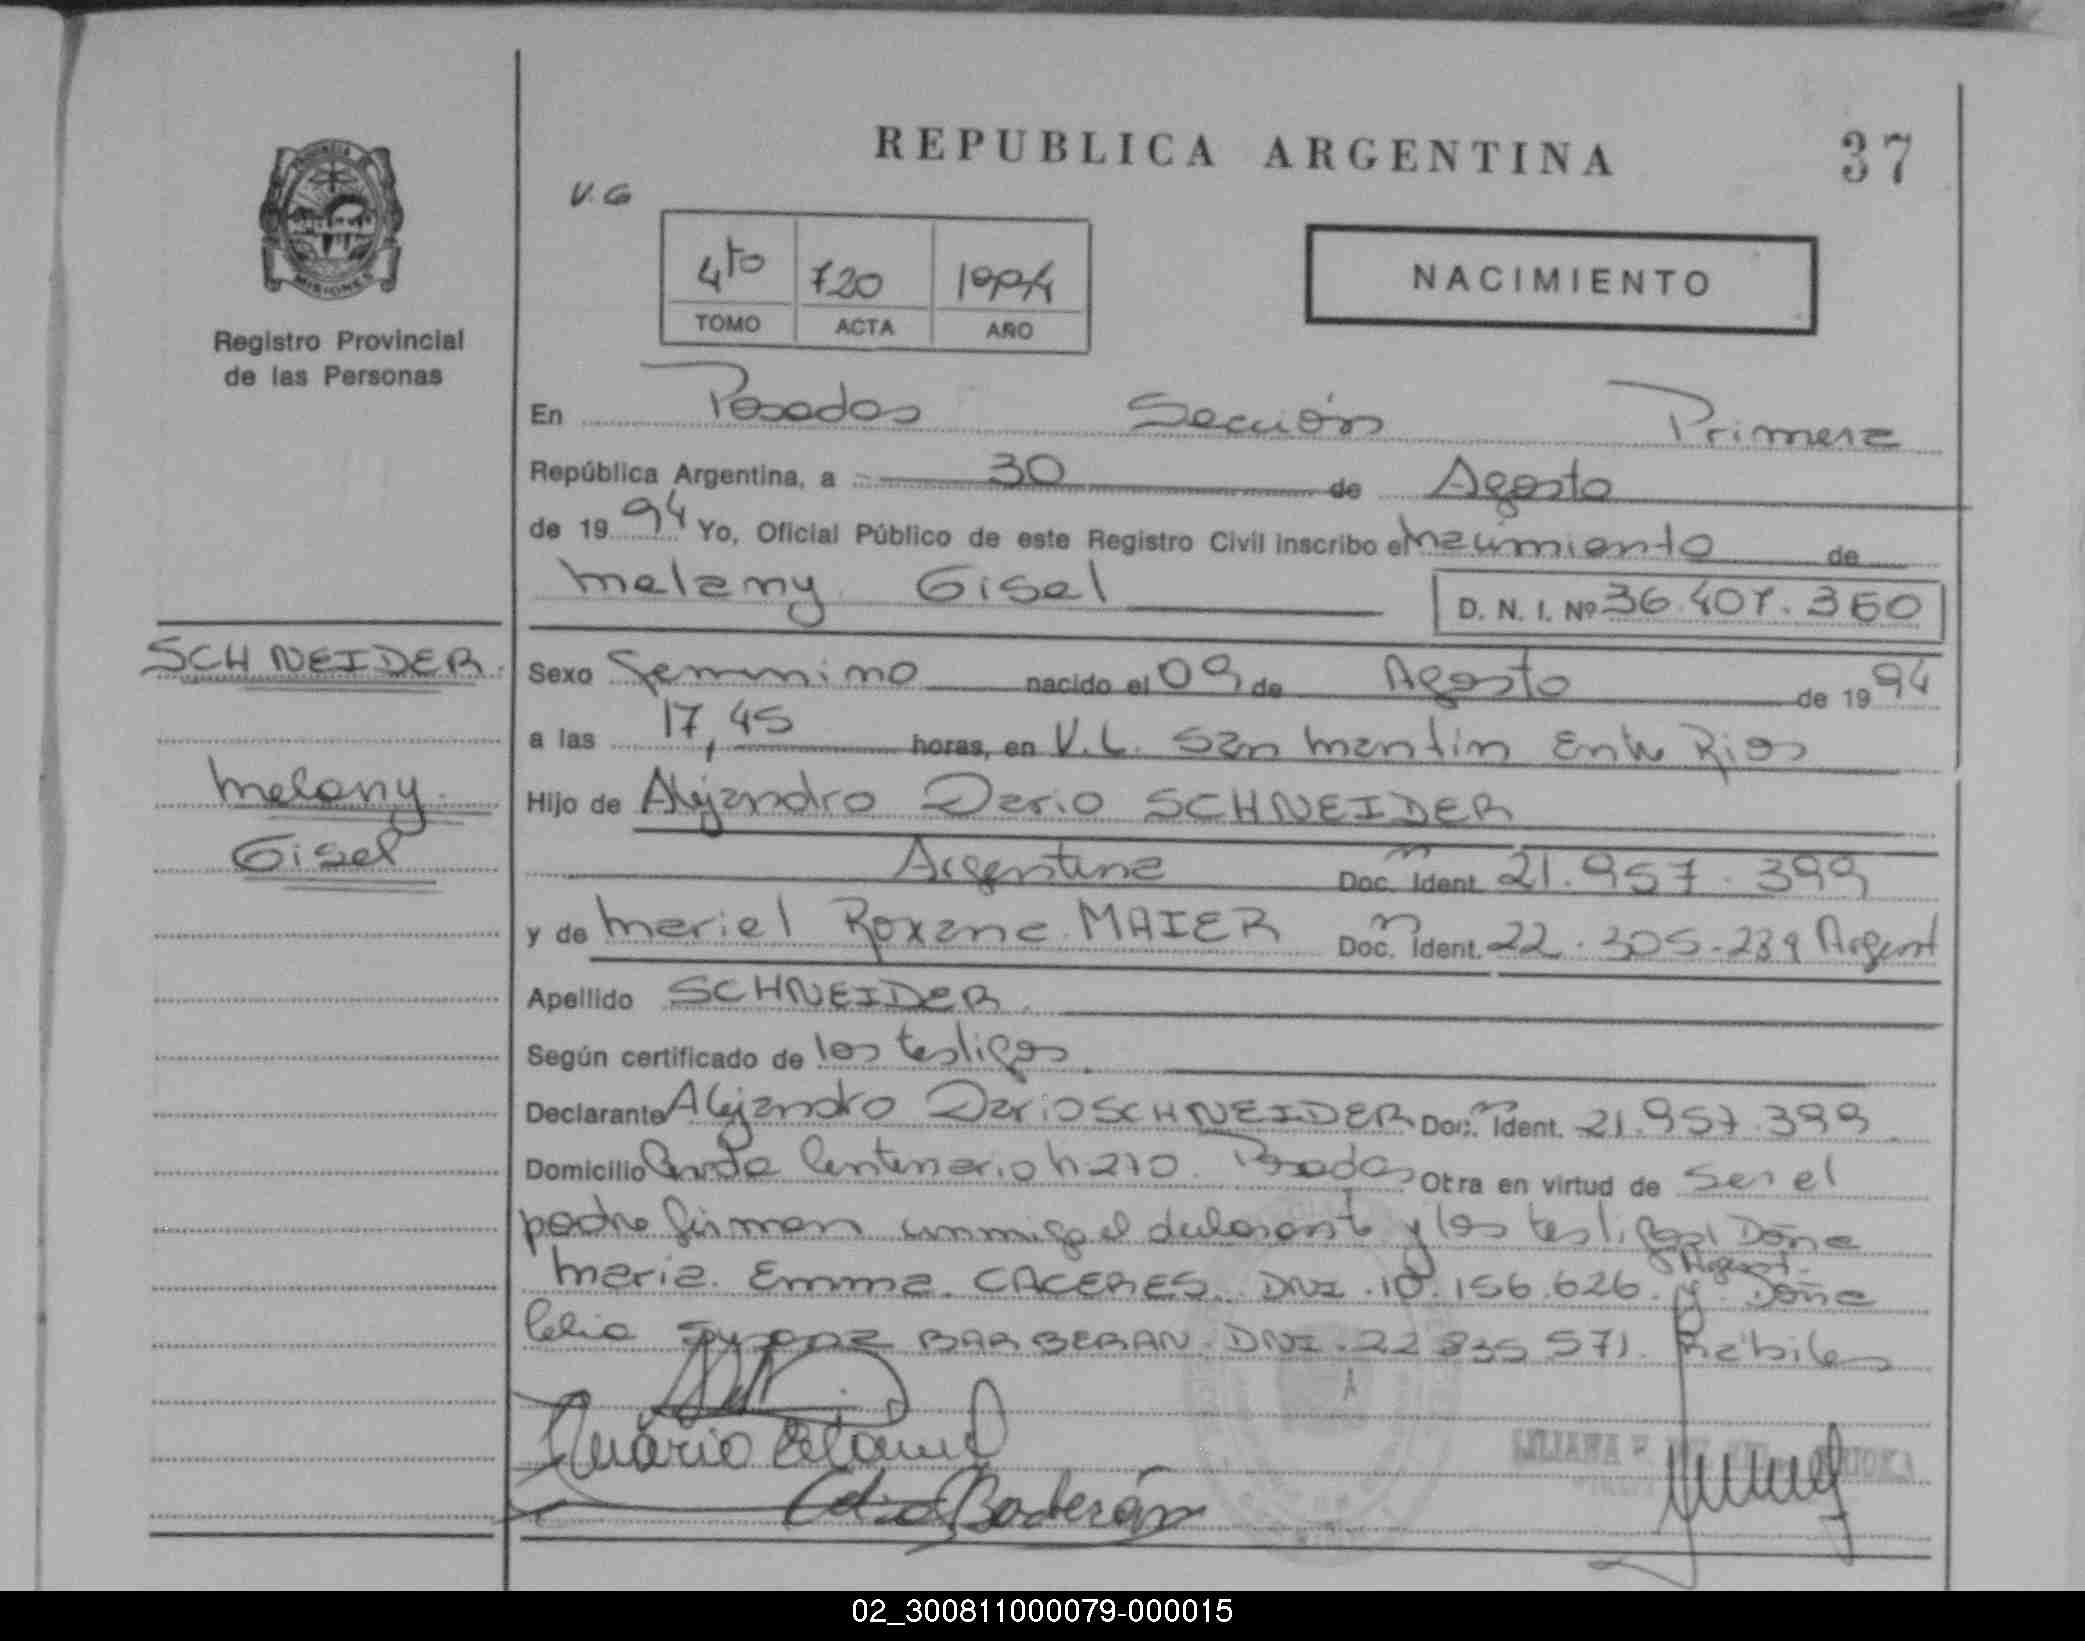 REPUBLICA ARGENTINA
37
V.G
PROVINCIA DE
MISIONES
Registro Provincial
de las Personas
4to 720 1994
TOMO ACTA AÑO
NACIMIENTO
En Posadas Sección Primera
República Argentina, a 30 de Agosto
de 1994 Yo, Oficial Público de este Registro Civil inscribo el nacimiento de
Melany Gisel
D. N. I. Nº 36.407.360
SCHNEIDER
Melany
Gisel
Sexo femenino nacido el 09 de Agosto de 1994
a las 17,45 horas, en V.L. San Martin Entre Rios
Hijo de Alejandro Dario SCHNEIDER
Argentina Doc. Ident. 21.957.399
y de Mariel Roxana MAIER Doc. Ident. 22.305.239 Argent
Apellido SCHNEIDER
Según certificado de los testigos
Declarante Alejandro Dario SCHNEIDER Doc. Ident. 21.957.399
Domicilio Centenario Posadas Otra en virtud de ser el
padre firman conmigo el declarante y los testigos Doña
Maria Emma CACERES DNI 10.156.626 Argent. y Doña
Celia Susana BARBERAN DNI 22.835.571 habiles
LILIANA
02_300811000079-000015